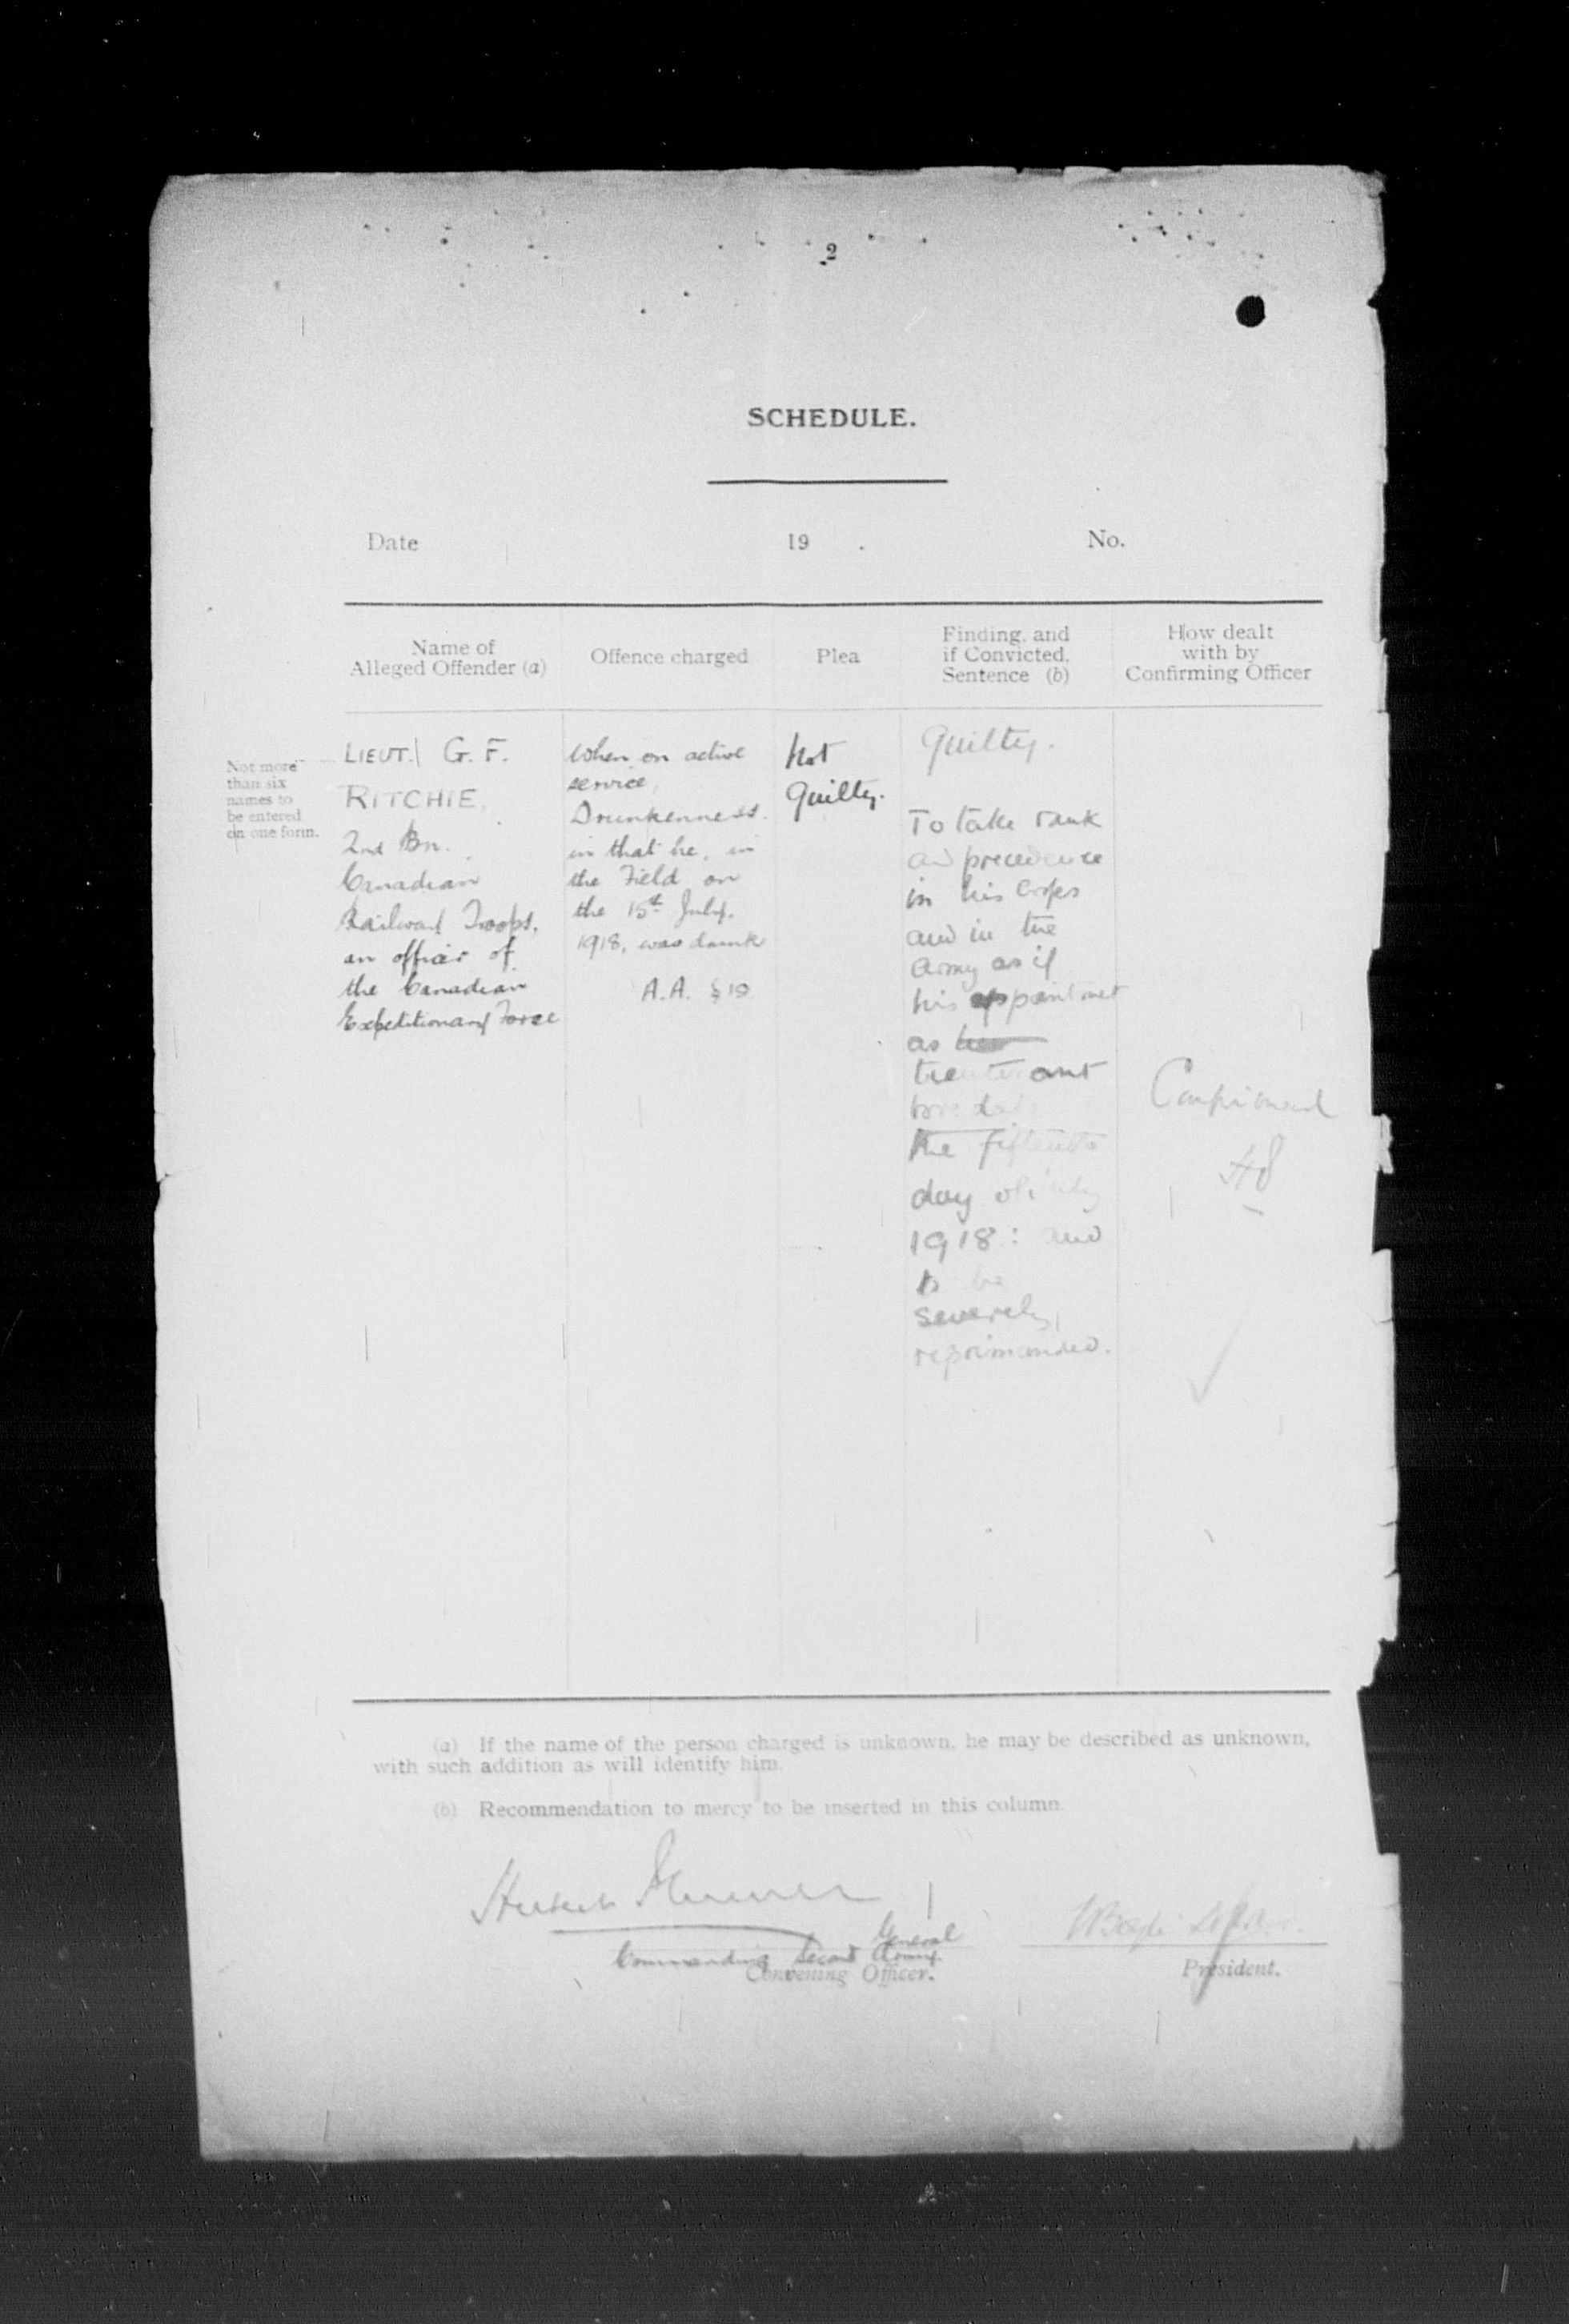 2
SCHEDULE.
Date 19 . No.
Name of
Alleged Offender (a)
Offence charged
Plea
Finding, and
if Convicted,
Sentence (b)
How dealt
with by
Confirming Officer
Not more
than six
names to
be entered
on one form.
LIEUT. G. F.
RITCHIE,
2nd Bn.
Canadian
Railway Troops,
an officer of
the Canadian
Expeditionary Force
When on active
service,
Drunkenness.
in that he, in
the Field on
the 15th July,
1918, was drunk
A.A. § 19
Not
Guilty.
Guilty.
To take rank
and precedence
in his Corps
and in the
Army as if
his appointment
as
lieutenant
bore date
the fifteenth
day of July
1918: and
to be
severely
reprimanded.
Confirmed
(a) If the name of the person charged is unknown, he may be described as unknown,
with such addition as will identify him.
(b) Recommendation to mercy to be inserted in this column.
General
Commanding Second Army
Convening Officer.
President.